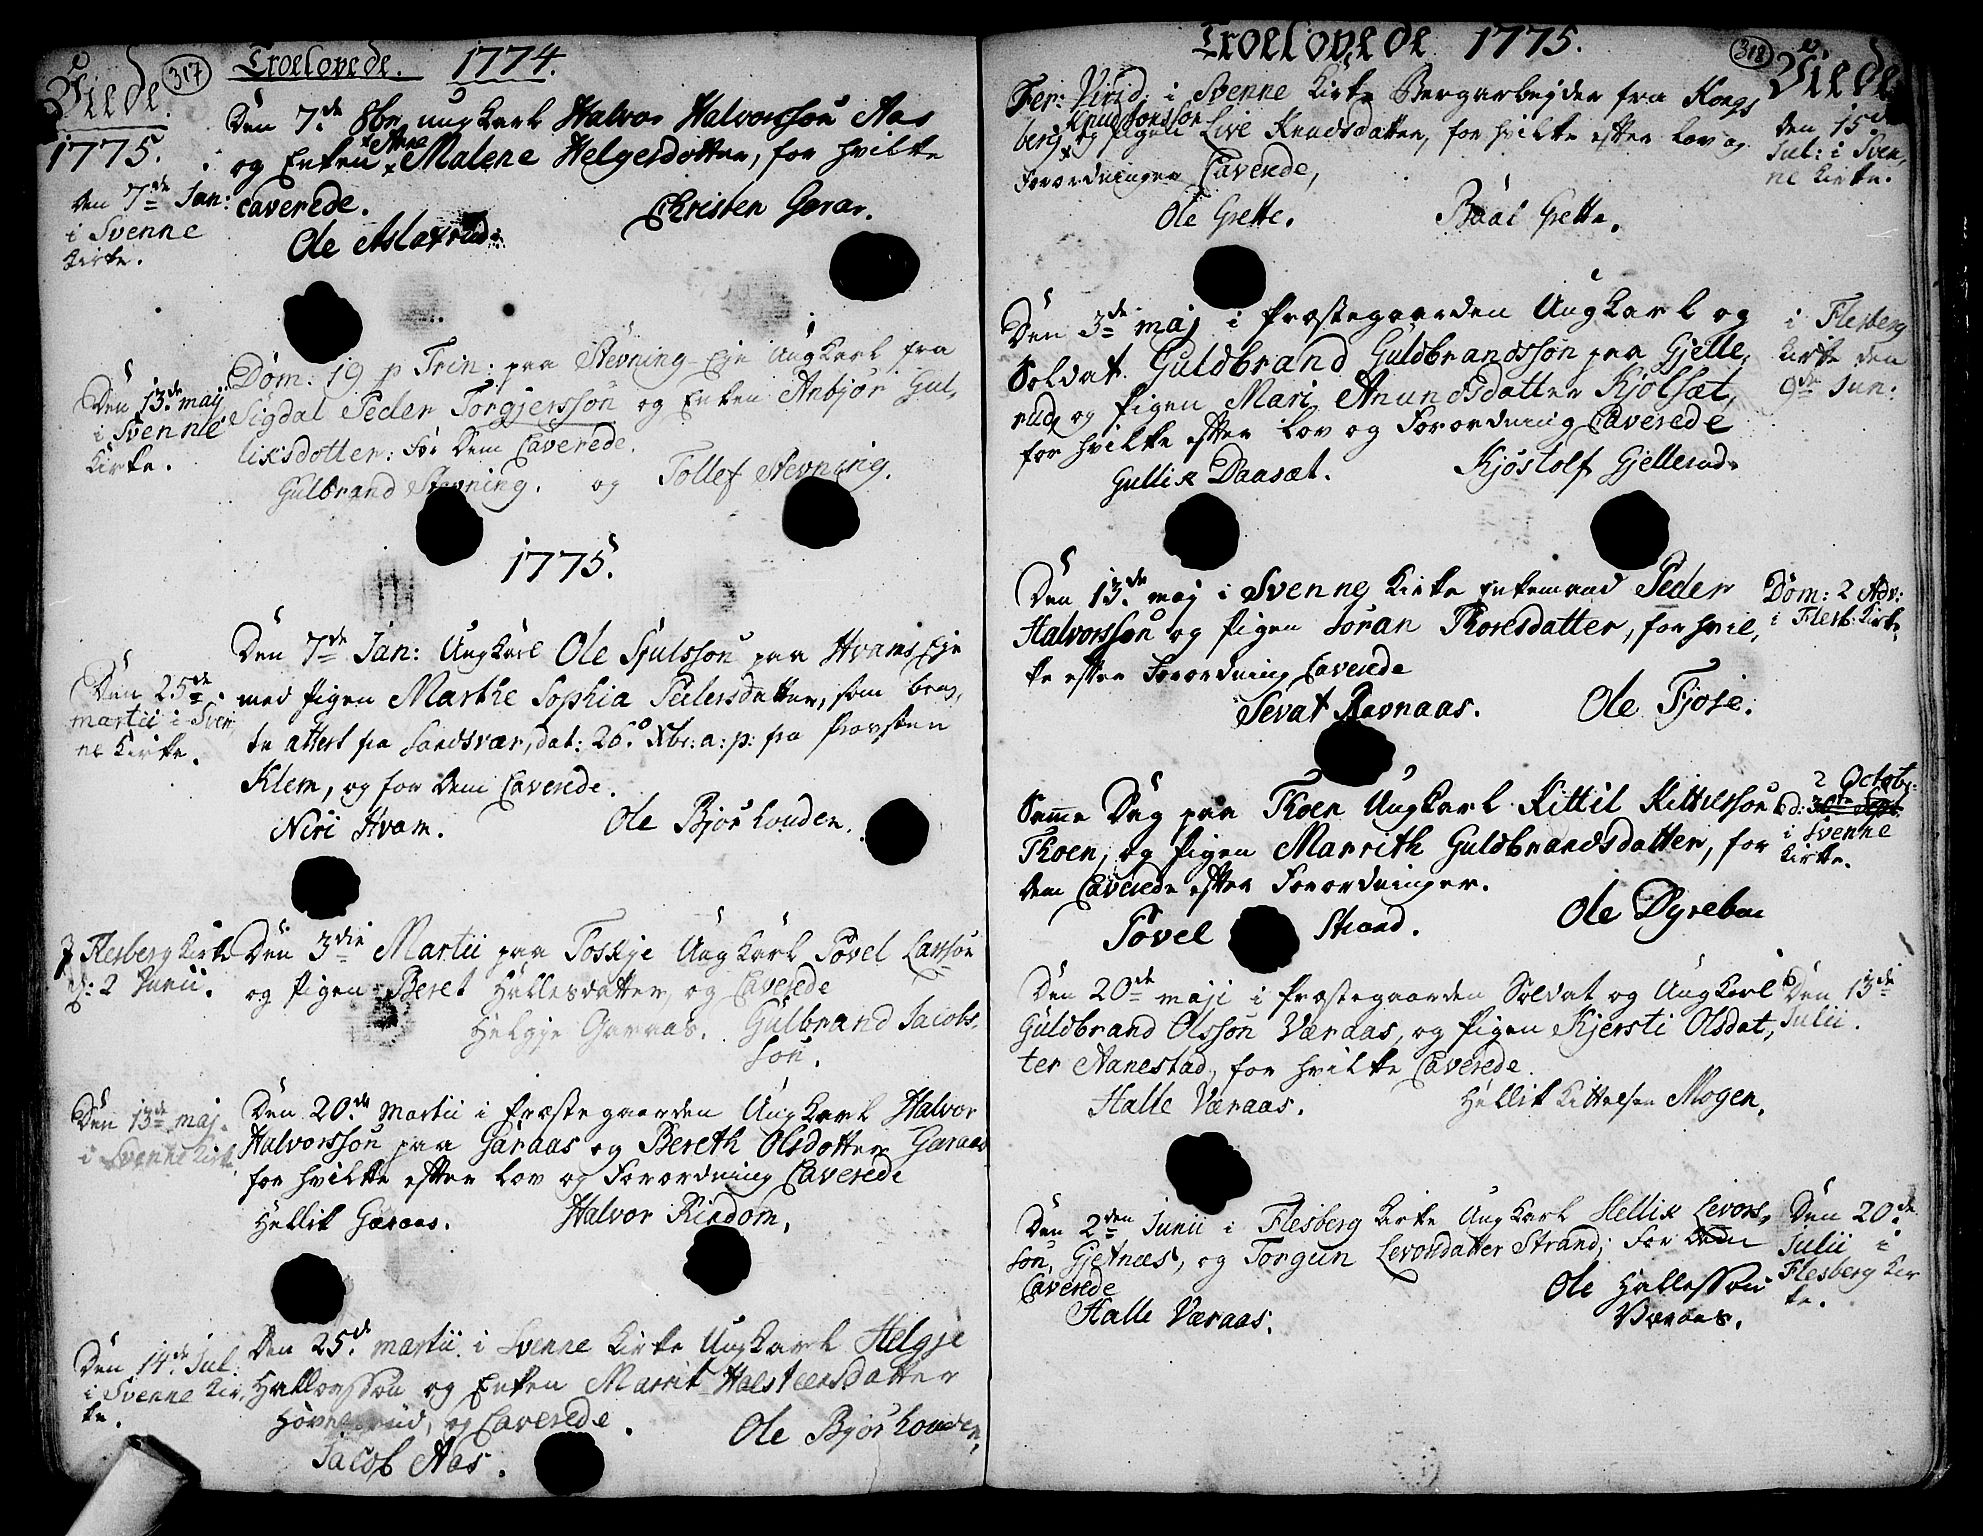 317
Troelovede. 1774.
Viede
1775.
Den 7de 8br ungkarl Halvor Halvorssøn Aas
og Enken Anne Malene Helgesdotter, for hvilke
caverede.
Ole Aslaxrud. Christen Garaas.
Den 7de Jan:
i Svenne
Kirke.
Dom: 19 p Trin: paa Stevning Eje Ungkarl fra
Sigdal Peder Torgjerssøn og Enken Anbjør Gul,
liksdotter: For Dem Caverede.
Gulbrand Stevning. og Tollef Stevning.
Den 13de maij
i Svenne
Kirke.
1775.
Den 7de Jan: Ungkarl Ole Sjulssøn paa Hvams Eje
med Pigen Marthe Sophia Pedersdatter, som brag,
te attest fra Sandsvær, dat: 20 Xbr: a: p: fra Provsten
Klem, og for Dem Caverede.
Niri Hvam. Ole Bjørkouden.
Den 25de
martii i Sven
ne Kirke.
Den 3die Martii paa Toskje Ungkarl Povel Larssøn
og Pigen Beret Hellesdatter, og Caverede
Helgje Garaas. Gulbrand Jacobs,
søn.
I Flesberg Kirke
d: 2 Junii.
Den 20de Martii i Præstegaarden Ungkarl Halvor
Halvorssøn paa Garaas og Bereth Olsdotter Garaas
for hvilke efter Lov og Forordning Caverede
Hellik Garaas. Halvor Rindom.
Den 13de maj.
i Svenne Kirke
Den 25de martii i Svenne Kirke Ungkarl Helgje
Hallvorssøn og Enken Marrit Halsteensdatter
Høvnerud, og Caverede.
Jacob Aas. Ole Bjørkouden,
Den 14de Jul:
i Svenne Kir,
ke.
Troelovede 1775.
318
Viede
Fer: Virid: i Svenne Kirke Bergarbejder fra Kongs
Knud Jonssøn
berg og Pigen Live Knudsdatter, for hvilke efter Lov og
Forordninger Caverede,
Ole Grette. Baal Grette.
Den 15de
Jul: i Sven,
ne Kirke.
Den 3de maj i Præstegaarden Ungkarl og
Soldat Guldbrand Guldbrandssøn paa Gjelle,
rud, og Pigen Mari Anundsdatter Kjølsæt,
for hvilke efter Lov og Forordning Caverede
Gullik Daasæt. Kjøstolf Gjellerud.
i Flesberg
Kirke den
9de Jun:
Den 13de maj i Svenne Kirke Enkemand Peder
Halvorssøn og Pigen Søran Thoresdatter, for hvil,
ke efter Forordning Caverede
Sevat Ravnaas. Ole Fjøse.
Dom: 2 Adv:
i Flesb: Kirke.
Samme Dag paa Thoen Ungkarl Kittil Kittilssøn
Thoen, og Pigen Marrith Guldbrandsdatter, for
dem Caverede efter Forordninger.
Povel Strand. Ole Dyrebu
2 Octobr:
d: 30te Sept.
i Svenne
Kirke.
Den 20de maji i Præstegaarden Soldat og Ungkarl
Guldbrand Olssøn Væraas, og Pigen Kjersti Olsdat,
ter Aanestad, for hvilke Caverede.
Halle Væraas. Hellik Kittelsen Mogen.
Den 13de
Julii.
Den 2den Junii i Flesberg Kirke Ungkarl Hellik Levors,
søn, Gjetnæs, og Torgun Levorsdatter Strand; For Dem
Caverede
Halle Væraas. Ole Hallessøn
Væraas.
Den 20de
Julii i
Flesberg Kir
ke.